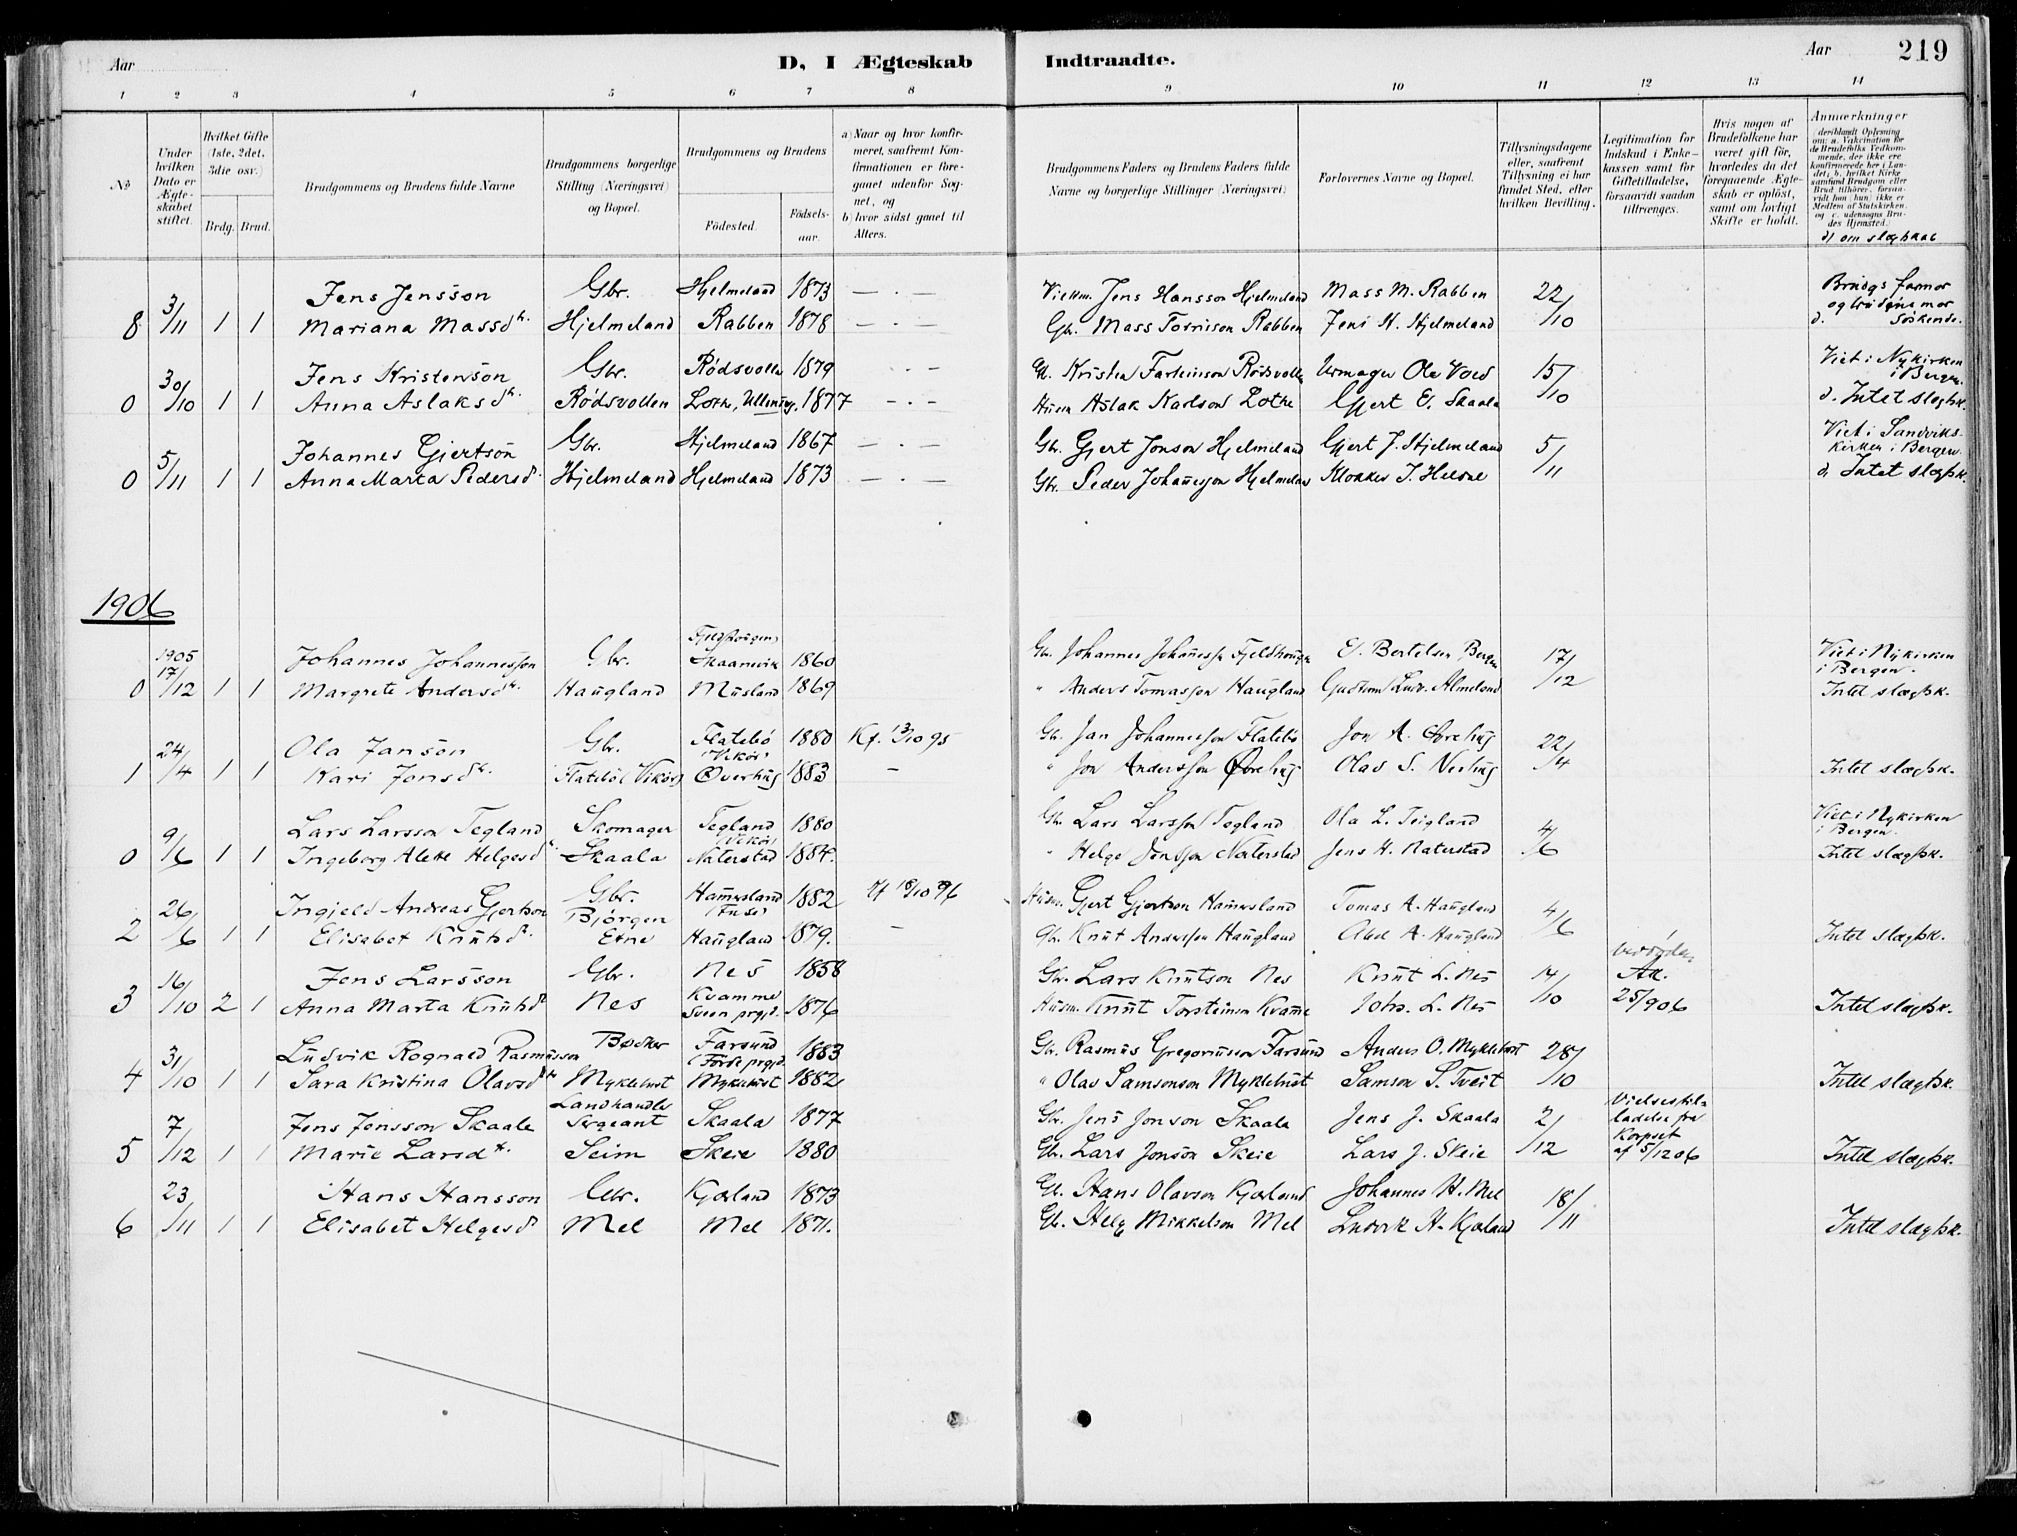 Aar
D, I Ægteskab Indtraadte.
Aar 219
1 2 3 4 5 6 7 8 9 10 11 12 13 14
No
Under hvilken Dato er Ægteskabet stiftet.
Hvilket Gifte (1ste, 2det, 3die osv.)
Brdg. Brud.
Brudgommens og Brudens fulde Navne
Brudgommens borgerlige Stilling (Næringsvei) og Bopæl.
Brudgommens og Brudens
Födested.
Födsels-aar.
a) Naar og hvor konfirmeret, saafremt Konfirmationen er foregaaet udenfor Sognet, og b) hvor sidst gaaet til Alters.
Brudgommens Faders og Brudens Faders fulde Navne og borgerlige Stillinger (Næringsvei)
Forlovernes Navne og Bopæl.
Tillysningsdagene eller, saafremt Tillysning ei har fundet Sted, efter hvilken Bevilling.
Legitimation for Indskud i Enkekassen samt for Giftetilladelse, forsaavidt saadan tiltrænges.
Hvis nogen af Brudefolkene har været gift för, hvorledes da det foregaaende Ægteskab er oplöst, samt om lovligt Skifte er holdt.
Anmærkninger deriblandt Oplysning om: a. Vakcination for de Brudefolks Vedkommende, der ikke ere konfirmerede her i Landet; b. hvilket Kirkesamfund Brudgom eller Brud tilhörer, forsaavidt han (hun) ikke er Medlem af Statskirken, og c. udensogns Brudes Hjemsted.
d) om slægtskab
Jens Jensson Gbr. Hjelmeland 1873 — . — Jens Hansson Hjelmeland Mass M. Rabben 22/10 Brudgs farmor
8 3/11 1 1 Mariana Massdtr. Hjelmeland Rabben 1878 — . — Gbr. Mass Torrison Rabben Jens H. Hjelmeland og brudens mor
d. Söskende.
Jens Kristenson Gbr. Rödsvollen 1879 . . — Kristen Rödsvollen Urmager Ola Vold 15/10 Viet i Nykirken i Bergen.
0 30/10 1 1 Anna Aslaksdtr. Rödsvollen Lothe, 1877 — . — Husm Aslak Karlson Lothe Gjert E. Skaala d. Intet slægtsk.
Johannes Gjertson Gbr. Hjelmeland 1867 — . — Gbr. Gjert Jonson Hjelmeland Gjert J. Hjelmeland 5/11 Viet i Sandviks-kirken i Bergen.
0 5/11 1 1 Anna Marta Pedersd. Hjelmeland Hjelmeland 1873 — . — Gbr. Peder Johannesson Hjelmeland Klokker J. d. Intet slægtsk.
1906
1905
Johannes Johannesson Gbr. Skaanevik 1860 Gbr. Johannes Johannesson E. Bertelsen Bergen 17/12 Viet i Nykirken i Bergen.
0 17/12 1 1 Margrete Andersdtr. Haugland Musland 1869 " Anders Tomasson Haugland Almeland Intet slægtsk.
Ola Janson Gbr. Flatebö (Vikör) 1880 Kf. 13/10 95 Gbr. Jan Johannesson Flatebö Jon A. 22/4
1 24/4 1 1 Kari Jonsdtr. Flatebö (Vikör) Øverhus 1883 — " Jon Andersson Olav S. Intet slægtsk.
Lars Larsson Tegland Skomager Tegland (Vikör) 1880 Gbr. Lars Larsson Tegland Ola L. Teigland 4/6 Viet i Nykirken i Bergen.
0 9/6 1 1 Ingeborg Alette Helgesd. Skaala Naterstad 1884. " Helge Jensson Naterstad Jens H. Naterstad Intet slægtsk.
Ingjeld Andreas Gjertson Gbr. Bjørgen Hammersland (Fuse) 1882 Kf 18/10 96 Husm. Gjert Gjertson Hammersland Tomas A. Haugland 4/6
2 26/6 1 1 Elisabet Knutsd. Etne Haugland 1879. — Gbr. Knut Andersson Haugland A. Haugland Intet slægtsk.
Jens Larsson Gbr. Nes 1858 Gbr. Lars Knutson Nes Knut L. Nes 14/10
3 16/10 2 1 Anna Marta Knutsd. Nes Kvamme prgjd. 1876 Husm. Knut Torsteinson Kvamme Johs. L. Nes 25/9 06 Intet slægtsk.
Ludvik Rognald Rasmusson Bødker Farsund (Förde prgjd. 1883 Gbr. Rasmus Gregoriusson Farsund Anders O. Myklebust 28/10
4 31/10 1 1 Sara Kristina Olavsdtr Myklebust Myklebust 1882 " Olav Samsonson Myklebust Samson S. Tveit Intet slægtsk.
Jens Jensson Skaala Landhandler Sergeant Skaala 1877 Gbr. Jens Jonson Skaala Jens J. Skaala 2/12 Vielsestilladelse fra Korpset af 5/12 06
5 7/12 1 1 Marie Larsdtr. Seim Skeie 1880 Gbr. Lars Jonson Skeie Lars J. Skeie Intet slægtsk.
Hans Hansson Gbr. Kjærland 1873 Gbr. Hans Olavson Kjærland Johannes H. Mel 18/11
6 23/11 1 1 Elisabet Helgesd. Mel Mel 1871. Gbr. Helge Mikkelson Mel Ludvik H. Kjærland Intet slægtsk.